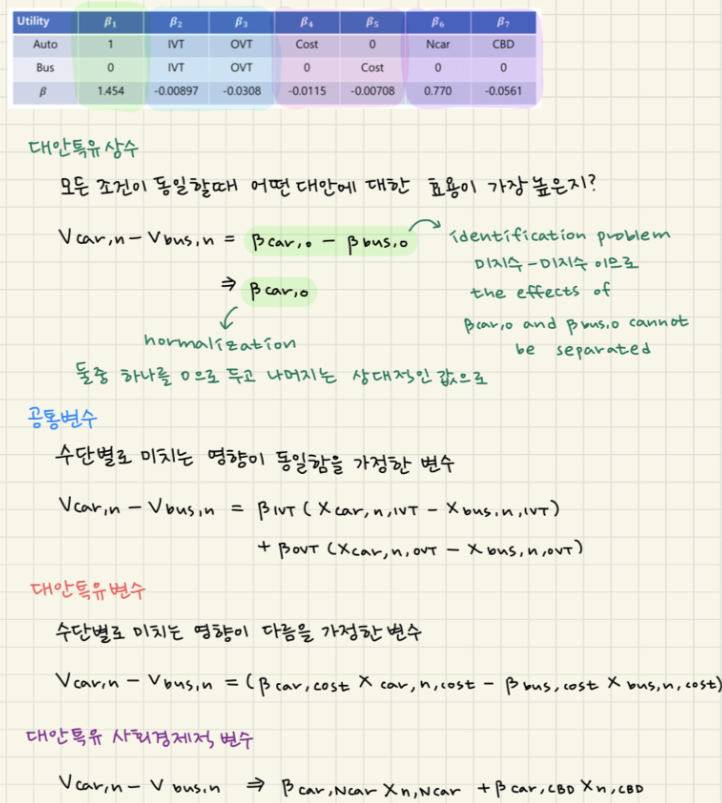 Utility β₁ β₂ β₃ β₄ β₅ β₆ β₇
Auto 1 IVT OVT Cost 0 Ncar CBD
Bus 0 IVT OVT 0 Cost 0 0
β 1.454 -0.00897 -0.0308 -0.0115 -0.00708 0.770 -0.0561
대안특유상수
모든 조건이 동일할때 어떤 대안에 대한 효용이 가장 높은지?
Vcar,n - Vbus,n = βcar,0 - βbus,0
identification problem
미지수-미지수 이므로
⇒ βcar,0
the effects of
βcar,0 and βbus,0 cannot
be separated
normalization
둘중 하나를 0으로 두고 나머지는 상대적인 값으로
공통변수
수단별로 미치는 영향이 동일함을 가정한 변수
Vcar,n - Vbus,n = βIVT (Xcar,n,IVT - Xbus,n,IVT)
+ βOVT (Xcar,n,OVT - Xbus,n,OVT)
대안특유변수
수단별로 미치는 영향이 다름을 가정한 변수
Vcar,n - Vbus,n = (βcar,cost Xcar,n,cost - βbus,cost Xbus,n,cost)
대안특유 사회경제적 변수
Vcar,n - Vbus,n ⇒ βcar,Ncar Xn,Ncar + βcar,CBD Xn,CBD